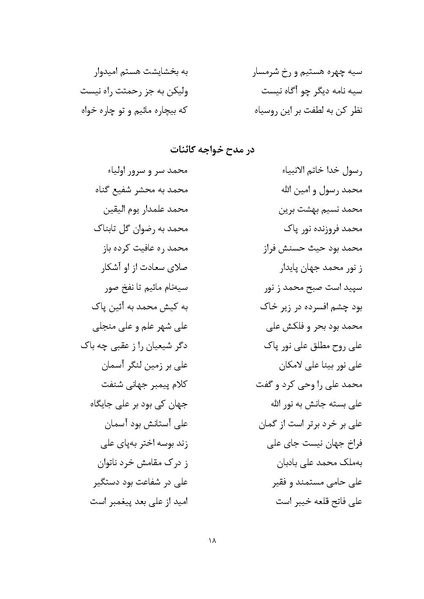 سیه چهره هستیم و رخ شرمسار به بخشایشت هستم امیدوار
سیه نامه دیگر چو آگاه نیست ولیکن به جز رحمتت راه نیست
نظر کن به لطفت بر این روسیاه که بیچاره مائیم و تو چاره خواه
در مدح خواجه کائنات
رسول خدا خاتم الانبیاء محمد سر و سرور اولیاء
محمد رسول و امین الله محمد به محشر شفیع گناه
محمد نسیم بهشت برین محمد علمدار یوم الیقین
محمد فروزنده نور پاک محمد به رضوان گل تابناک
محمد بود حیث حسنش فراز محمد ره عافیت کرده باز
ز نور محمد جهان پایدار صلای سعادت از او آشکار
سپید است صبح محمد ز نور سیه‌نام مائیم تا نفخ صور
بود چشم افسرده در زیر خاک به کیش محمد به آئین پاک
محمد بود بحر و فلکش علی علی شهر علم و علی منجلی
علی روح مطلق علی نور پاک دگر شیعیان را ز عقبی چه باک
علی نور بینا علی لامکان علی بر زمین لنگر آسمان
محمد علی را وحی کرد و گفت کلام پیمبر جهانی شنفت
علی بسته جانش به نور الله جهان کی بود بر علی جایگاه
علی بر خرد برتر است از گمان علی آستانش بود آسمان
فراخ جهان نیست جای علی زند بوسه اختر به‌پای علی
به‌ملک محمد علی بادبان ز درک مقامش خرد ناتوان
علی حامی مستمند و فقیر علی در شفاعت بود دستگیر
علی فاتح قلعه خیبر است امید از علی بعد پیغمبر است
۱۸